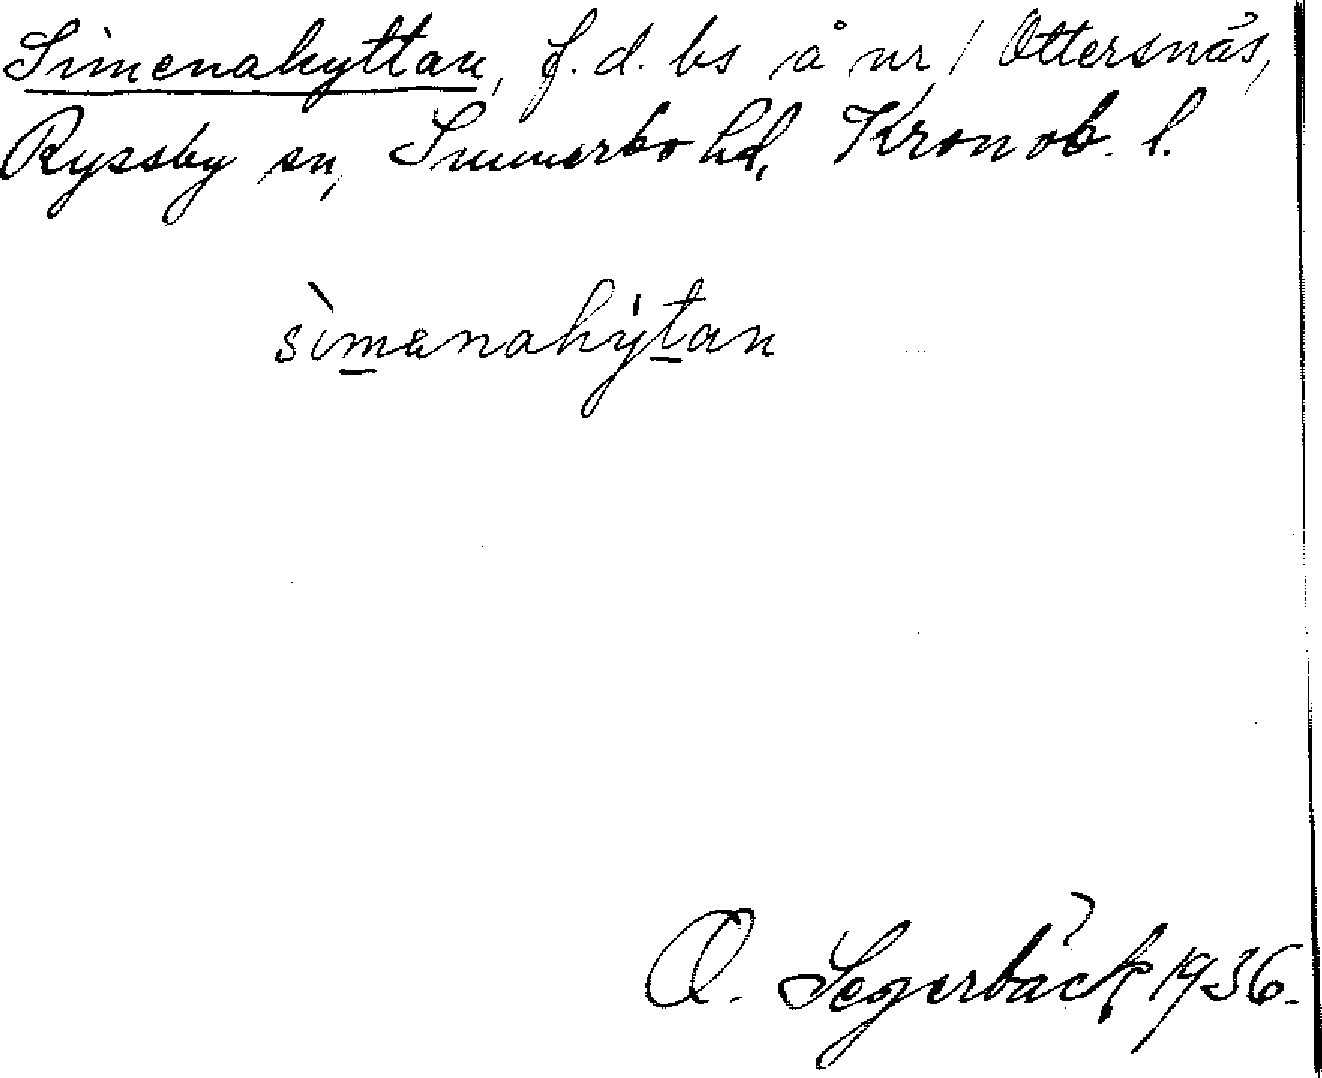 Simenahyttan, f.d. bs å nr 1 Ottersnäs,
Ryssby sn, Sunnerbo hd, Kronob. l.
sìmenahẏtan
O. Segerbäck 1936.